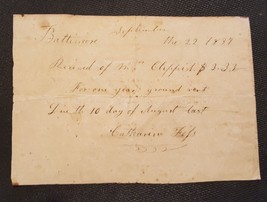 September
Baltimore the 29 1839
Received of Mr $ 3.33
For one year ground rent
Due the 10 day of August last
Catharine